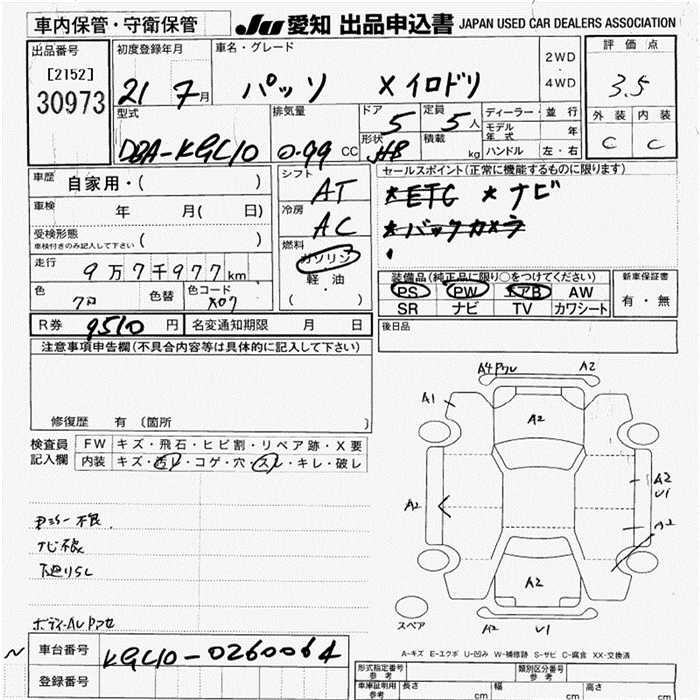 車内保管・守衛保管
JU 愛知 出品申込書 JAPAN USED CAR DEALERS ASSOCIATION
出品番号
[2152]
30973
初度登録年月
21 7月
車名・グレード
パッソ Xイロドリ
2WD
・
4WD
評価点
3.5
外装 内装
C C
型式
DBA-KGC10
排気量
0.99 CC
ドア
5
形状
HB
定員
5人
積載
kg
ディーラー・並行
モデル年式 年
ハンドル 左・右
車歴 自家用・( )
車検 年 月( 日)
受検形態
車検付きのみ記入して下さい ( )
走行
9万7千977km
色
色替
色コード
X07
シフト
AT
冷房
AC
燃料
ガソリン
軽・油
( ・ )
セールスポイント(正常に機能するものに限ります)
*ETC *ナビ
*バックカメラ
装備品(純正品に限り○をつけてください)
PS PW エアB AW
SR ナビ TV カワシート
新車保証書
有・無
R券 9510円 名変通知期限 月 日
後日品
注意事項申告欄(不具合内容等は具体的に記入して下さい)
修復歴 有 〔箇所 〕
検査員記入欄
FW キズ・飛石・ヒビ割・リペア跡・X要
内装 キズ・汚レ・コゲ・穴・スレ・キレ・破レ
ナビ不良
下廻りS
A2
A1
A2
A2
A2
U1
A2
A2
スペア
A2 U1
A-キズ E-エクボ U-凹み W-補修跡 S-サビ C-腐食 XX-交換済
車台番号 KGC10-0260064
登録番号
形式指定番号
参考
類別区分番号
参考
車庫証明用
参考
長さ cm
幅 cm
高さ cm